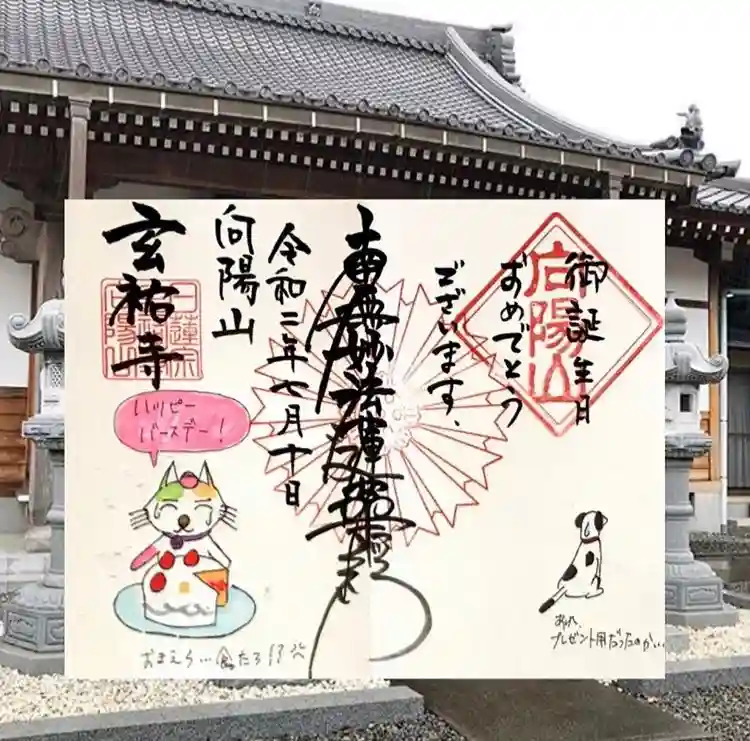 御誕生日
おめでとう
ございます、
向陽山
南無妙法蓮華経
令和二年七月十日
向陽山
玄祐寺
ハッピー
バースデー！
おまえら…食たろ!?
あれ、
プレゼント用だったのかい…